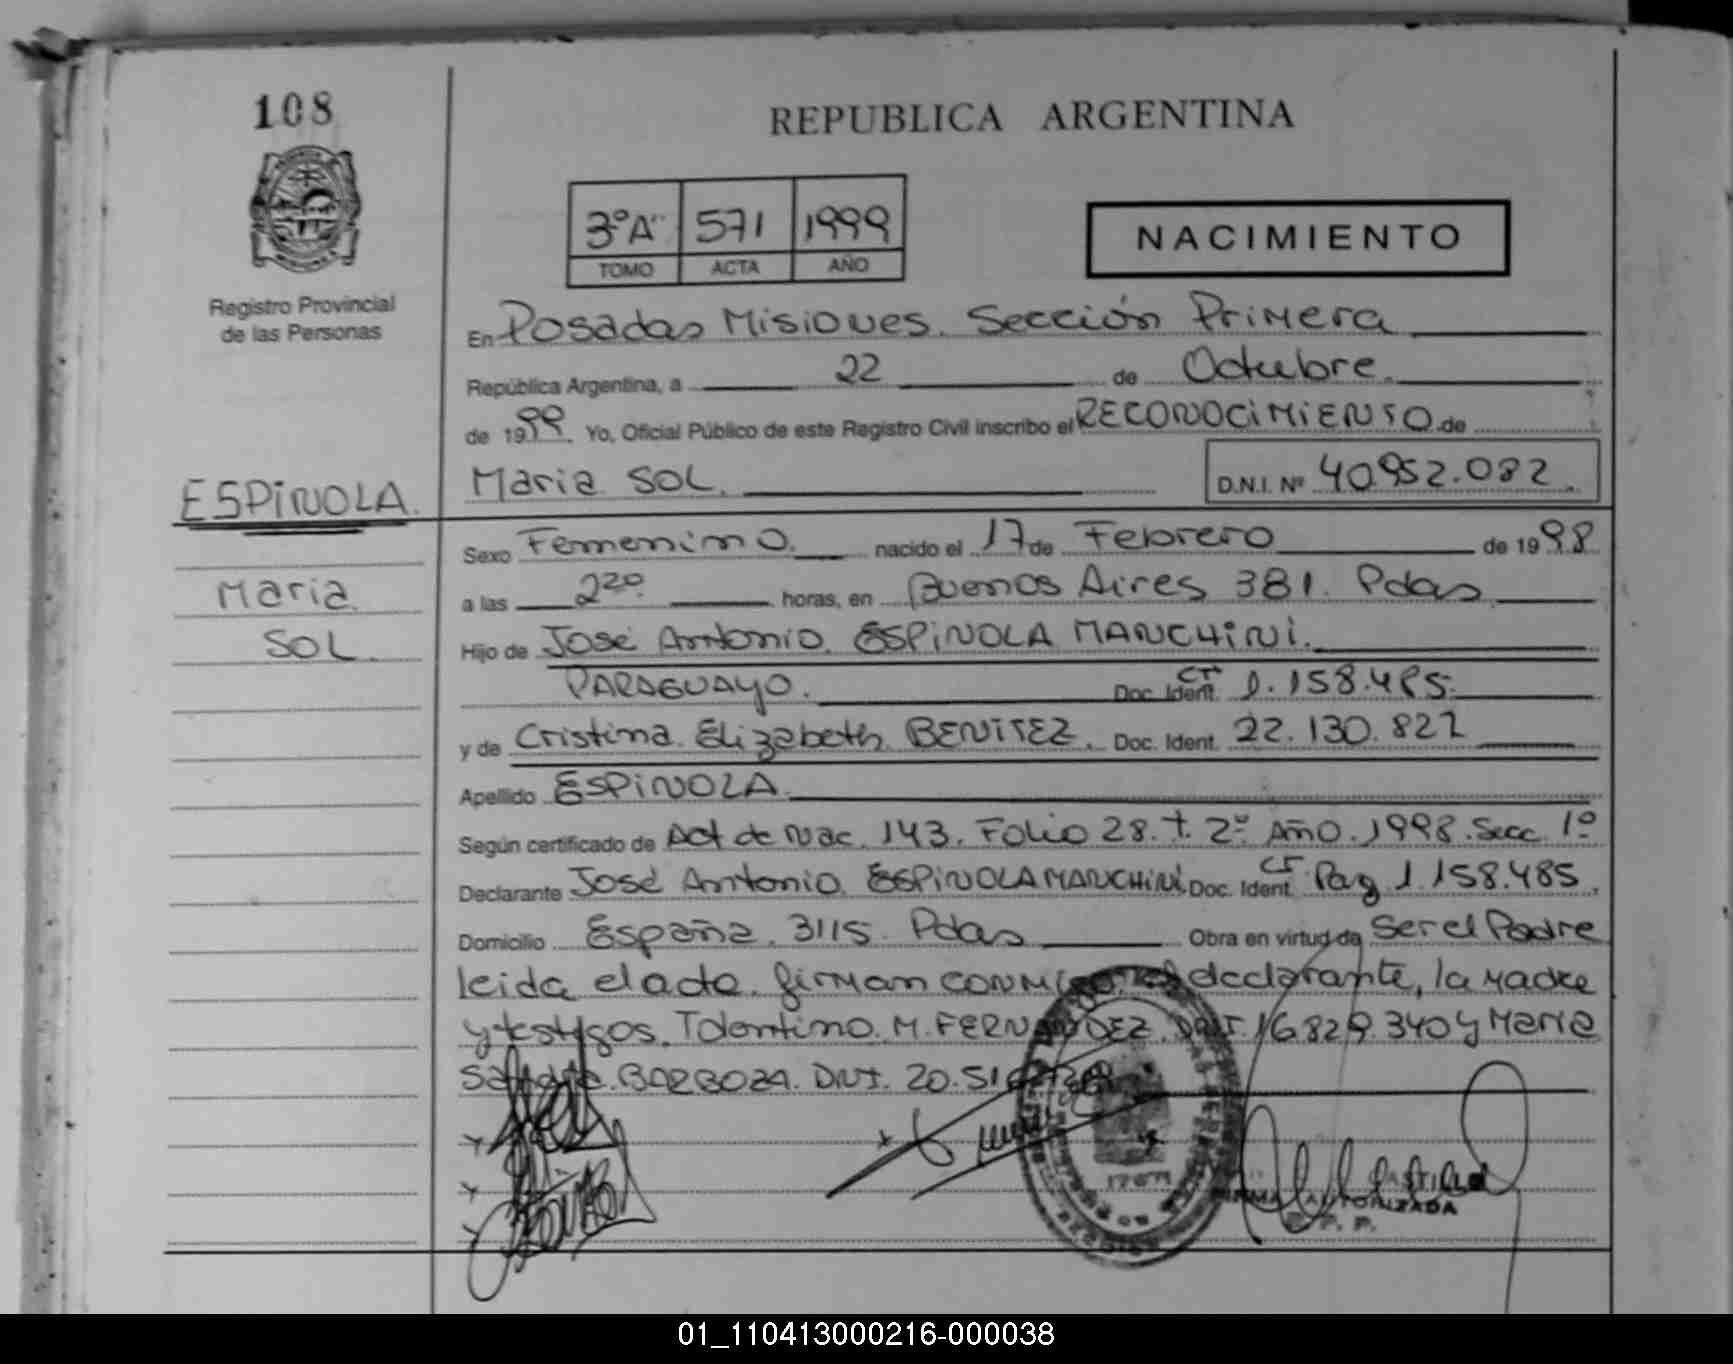 108
REPUBLICA ARGENTINA
3º"A" 571 1999
TOMO ACTA AÑO
NACIMIENTO
Registro Provincial
de las Personas
En Posadas Misiones. Sección Primera
República Argentina, a 22 de Octubre.
de 1999. Yo, Oficial Público de este Registro Civil inscribo el RECONOCIMIENTO de
ESPINOLA.
Maria
SOL.
Maria SOL. D.N.I. Nº 40.952.082.
Sexo Femenino. nacido el 17 de Febrero de 1998
a las 220. horas, en Buenos Aires 381. Pdas
Hijo de José Antonio. ESPINOLA MANCHINI.
PARAGUAYO. Doc. Ident. CI 1.158.485.
y de Cristina Elizabeth BENITEZ. Doc. Ident. 22.130.822
Apellido ESPINOLA
Según certificado de Act de Nac. 143. Folio 28. t. 2º Año. 1998. Secc. 1º
Declarante José Antonio. ESPINOLA MANCHINI. Doc. Ident. CI Pag 1.158.485.
Domicilio España. 3115. Pdas Obra en virtud de Ser el Padre
leida el acta. firman conmigo. el declarante, la madre
y testigos. Tolentino. M. FERNANDEZ. DNI. 16.829.340 y Maria
BARBOZA. DNI. 20.51
FIRMA AUTORIZADA
R. P. P.
01_110413000216-000038